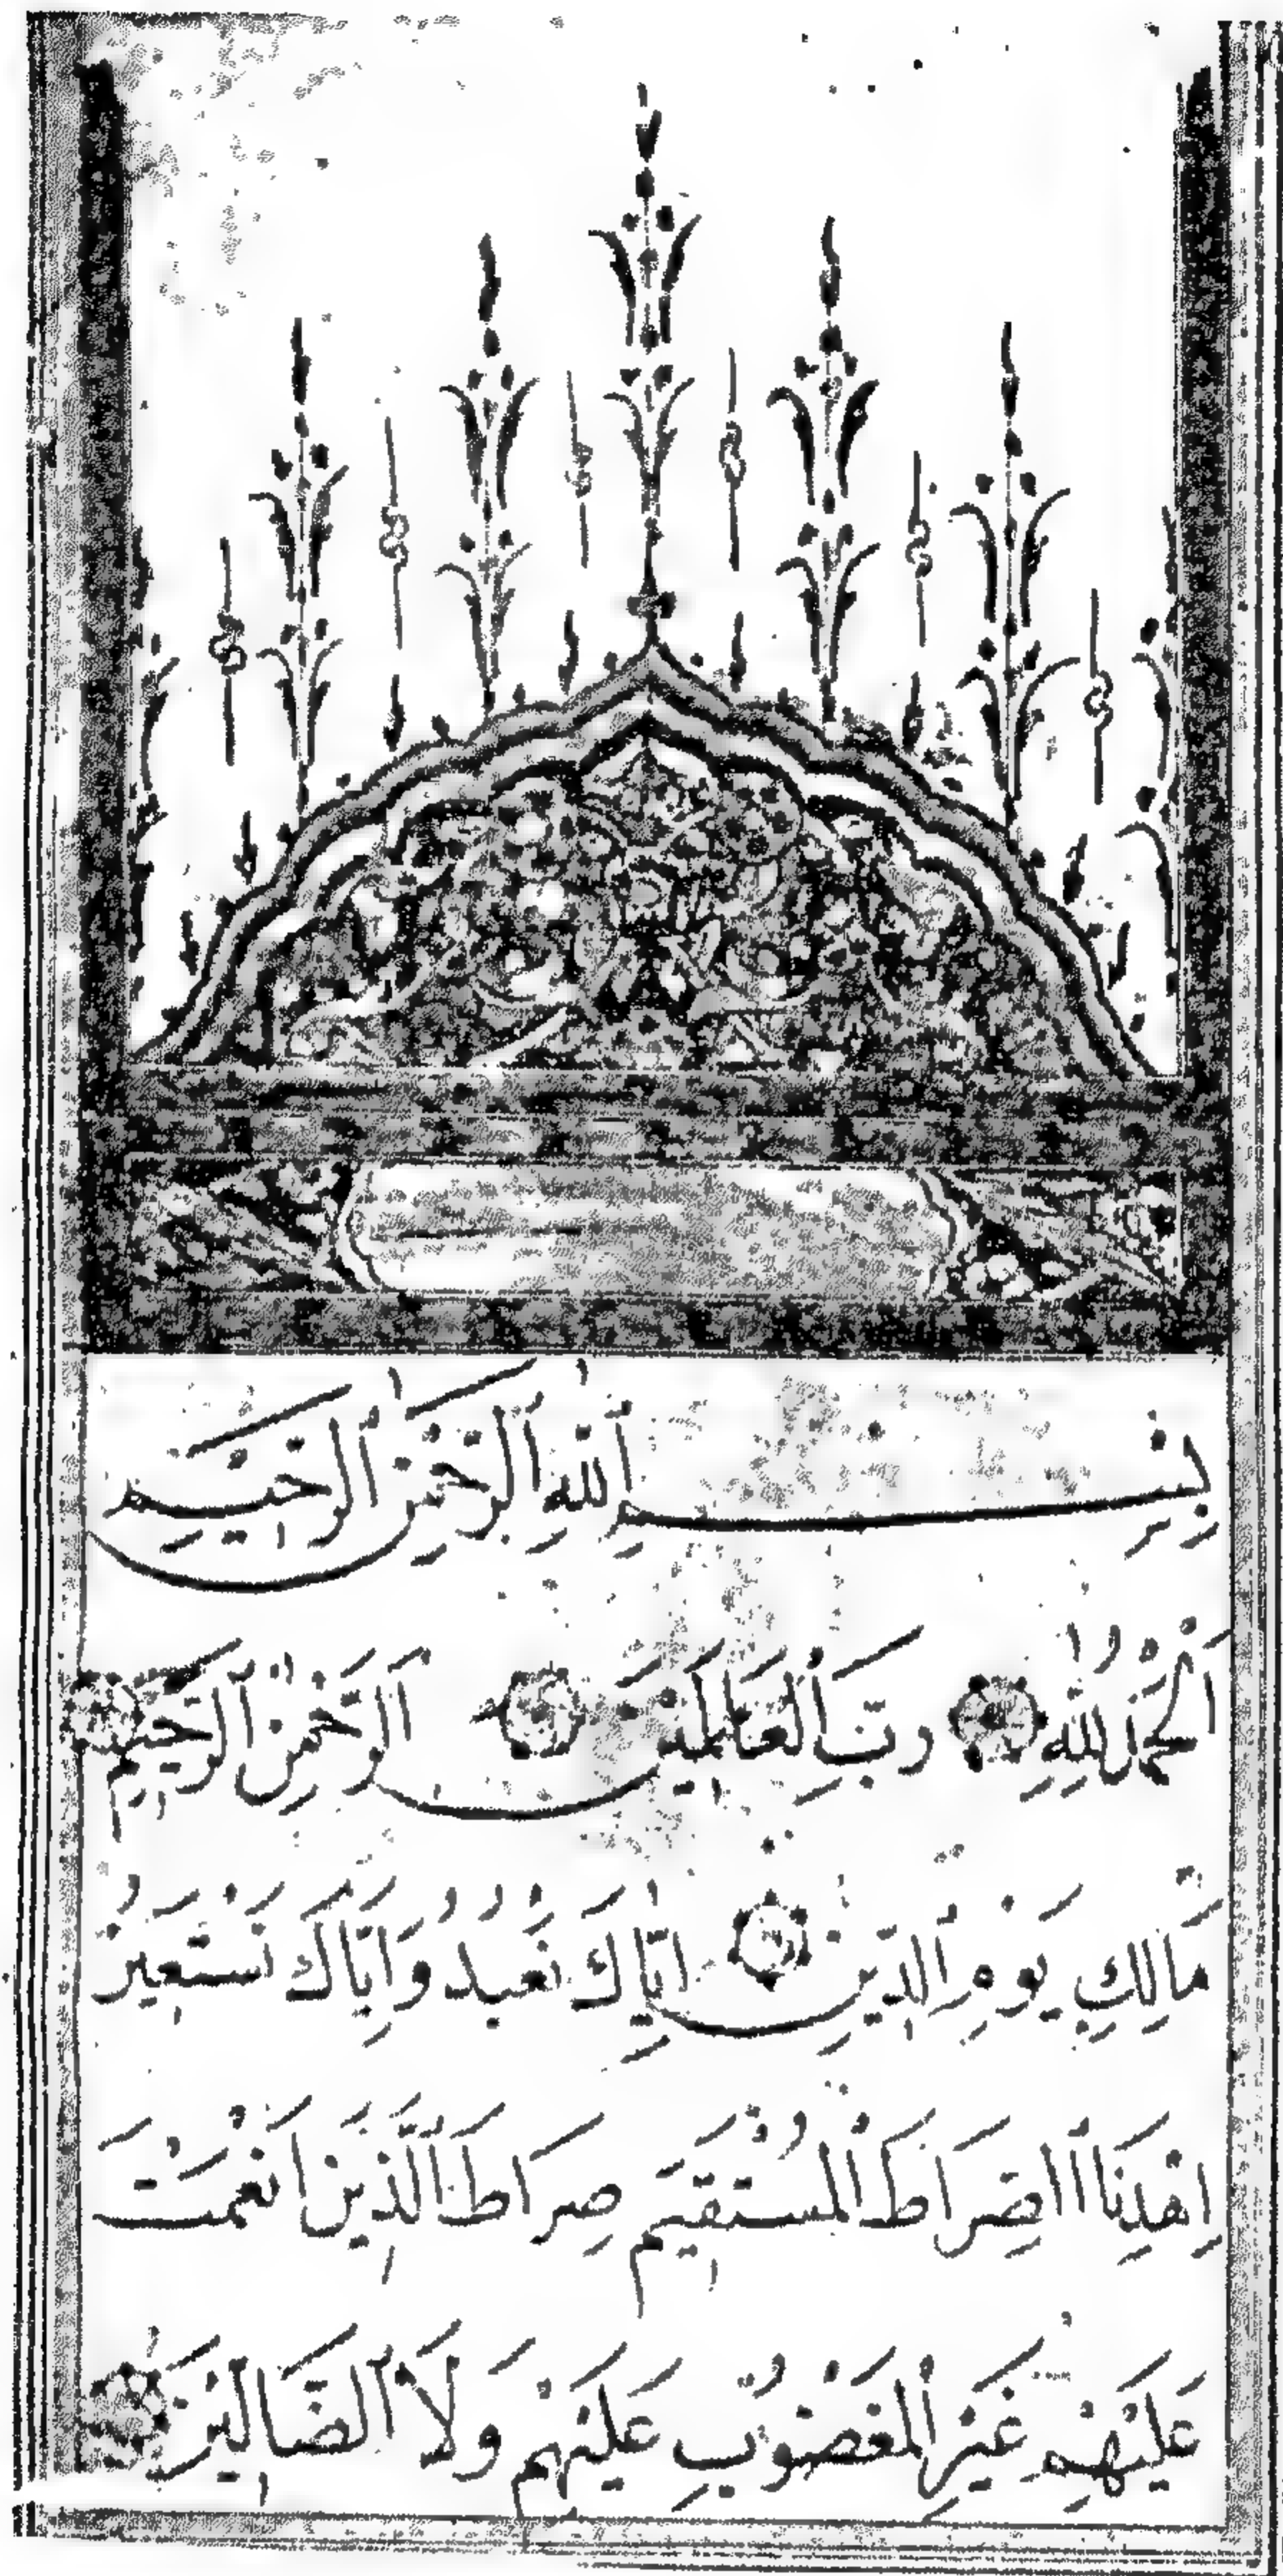 بِسْمِ اللّٰهِ الرَّحْمٰنِ الرَّحِيمِ
اَلْحَمْدُ لِلّٰهِ رَبِّ الْعَالَمِينَ اَلرَّحْمٰنِ الرَّحِيمِ
مَالِكِ يَوْمِ الدِّينِ اِيَّاكَ نَعْبُدُ وَاِيَّاكَ نَسْتَعِينُ
اِهْدِنَا الصِّرَاطَ الْمُسْتَقِيمَ صِرَاطَ الَّذِينَ اَنْعَمْتَ
عَلَيْهِمْ غَيْرِ الْمَغْضُوبِ عَلَيْهِمْ وَلَا الضَّالِّينَ